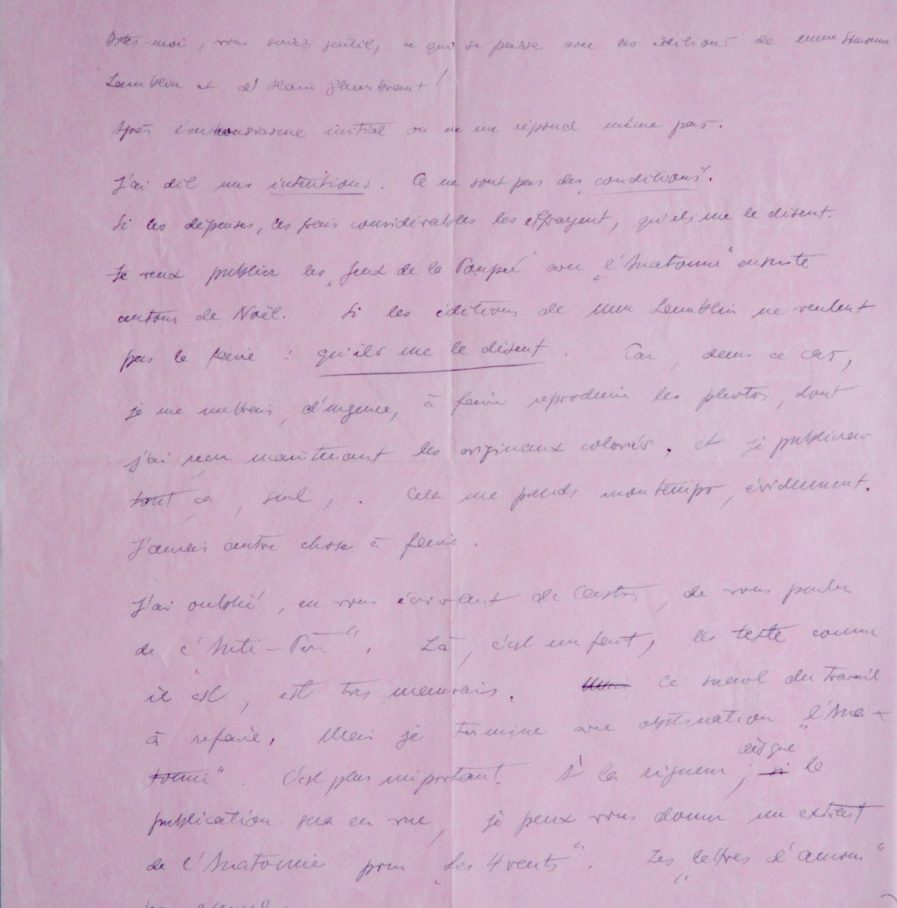 Dites-moi, vous seriez gentil, ce qui se passe avec les éditions de
Lemblin et d'Alain Gheerbrant!
Après l'enthousiasme initial on ne me répond même pas.
J'ai dit mes intentions. Ce ne sont pas des "conditions".
Si les dépenses, les frais considérables les effrayent, qu'ils me le disent.
Je veux publier les "Jeux de la Poupée" avec "l'Anatomie" ensuite
autour de Noël. Si les éditions de Mme Lemblin ne veulent
pas le faire : qu'ils me le disent. Car, dans ce cas,
je me mettrais, d'urgence, à faire reproduire les photos, dont
j'ai maintenant les originaux coloriés. et je publierai
tout ça, seul, . Cela me prends mon temps, évidemment.
J'aurais autre chose à faire.
J'ai oublié, en vous écrivant de Castres, de vous parler
de l'"Anti-Père". Là, c'est un fait, le texte comme
il est, est très mauvais. Ce serait du travail
à refaire. Mais je termine avec obstination "l'Ana-
tomie". C'est plus important. À la rigueur, dès que la
publication sera en vue, je peux vous donner un extrait
de l'Anatomie pour "Les 4 vents". Les "lettres d'amour"